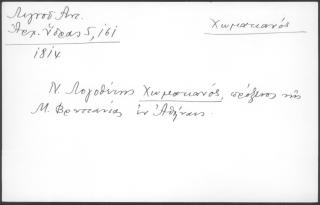 Λιγνοῦ Ἀντ.
Ἀρχ. Ὕδρας 5, 161
1814
Χωματιανός
Ν. Λογοθέτης Χωματιανός, πρόξενος τῆς
Μ. Βρεττανίας ἐν Ἀθήναις.